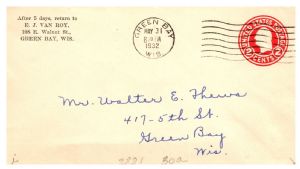 After 5 days, return to
E. J. VAN ROY,
E. Walnut St.,
GREEN BAY, WIS.
GREEN BAY
MAY 31
1932
WIS.
UNITED STATES POSTAGE
2 CENTS 2
Mr. Walter E. Thewa
417-5th St.
Green Bay
Wis.